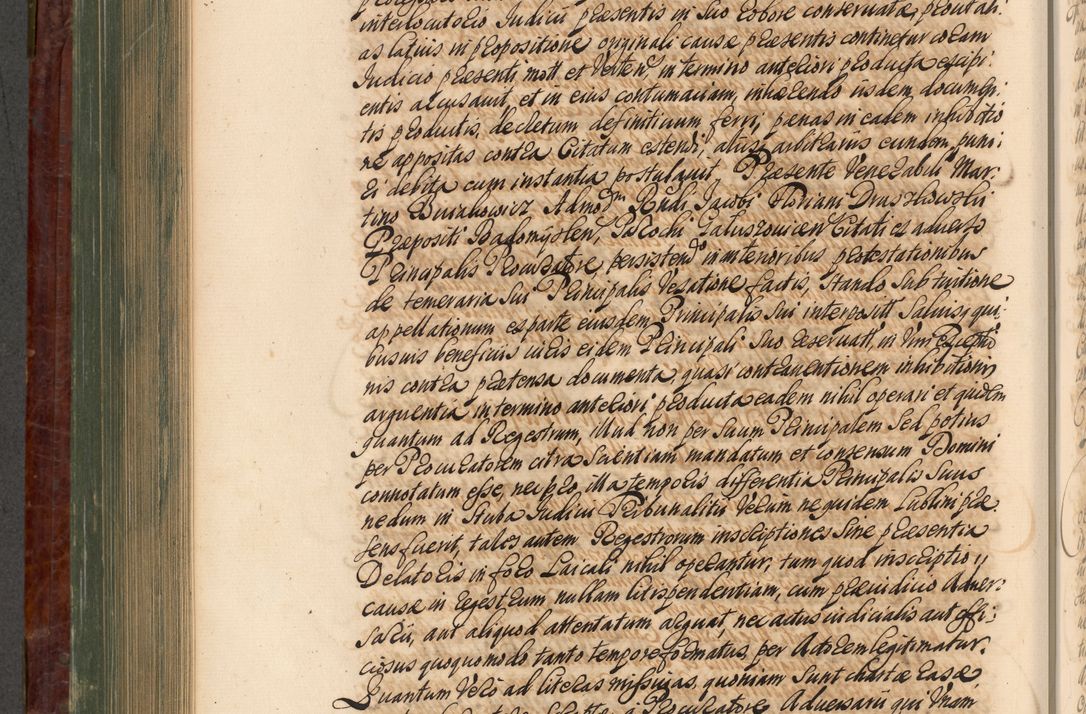 interlocutorio Judicii præsentis in suo robore conservatæ, prout ali:
as latius in propositione originali causæ præsentis continetur coram
Judicio præsenti mott. et verten, in termino anteriori producta excipi:
entis accusavit, et in eius contumaciam, inhærendo iisdem documen:
tis productis, decretum definitivum ferri, pœnas in eadem inhibitio
ne appositas contra Citatum extendi, aliàs arbitrariis eundem puni:
ri debitâ cum instantia postulavit, Præsente Venerabili Mar:
tino Burzkowicz, Admo dm Rndi Jacobi Floriani Druszkowski
Præpositi Radomyslen, Parochi Zaluszovicen Citati ex adverso
Principalis Procuratore, persisten in anterioribus protestationibus
de temeraria sui Principalis vexatione factis, stando sub tuitione
appellationum ex parte eiusdem Principalis sui interposit. Salvis, qui:
busvis beneficiis iuris eidem Principali suo reservatt, in vim Exceptio
nis contra prætensa documenta, quasi contraventionem inhibitionis
arguentia in termino anteriori producta eadem nihil operari et quidem
quantum ad Regestrum, illud non per suum Principalem sed potius
per Procuratorem citra scientiam mandatum et consensum Domini
connotatum esse, nec pro illa temporis differentia Principalis suus
nedum in Stuba Judicii Tribunalitii verum ne quidem Lublini præ
sens fuerit, tales autem Regestrorum inscriptiones sine præsentia
Delatoris in foro Laicali nihil operantur, tum quod inscriptio
causæ in regestrum nullam litispendentiam, cum præiudicio Adver:
sarii, aut aliquod attentatum arguat, nec actus iudicialis aut offi:
ciosus quoquo modo tanto tempore formatus, per Actorem legitimatur.
Quantum verò ad literas missivas, quoniam sunt chartæ rasæ
Procuratore Adversarii qui Unam